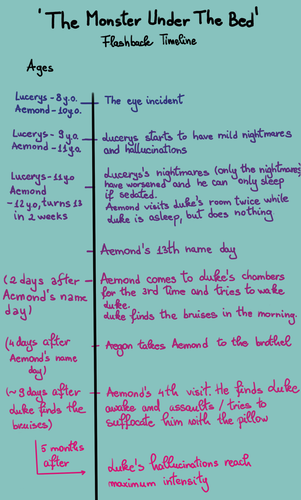 'The Monster Under The Bed'
Flashback Timeline
Ages
Lucerys - 8 y.o.
Aemond - 10 y.o.
The eye incident
Lucerys - 9 y.o
Aemond - 11 y.o
Lucerys starts to have mild nightmares
and hallucinations
Lucerys - 11 y.o
Aemond
- 12 y.o, turns 13
in 2 weeks
Lucerys's nightmares (only the nightmares)
have worsened and he can only sleep
if sedated.
Aemond visits Luke's room twice while
Luke is asleep, but does nothing
Aemond's 13th name day
(2 days after
Aemond's name
day)
Aemond comes to Luke's chambers
for the 3rd time and tries to wake
Luke.
Luke finds the bruises in the morning.
(4 days after
Aemond's name
day)
Aegon takes Aemond to the brothel
(~ 9 days after
Luke finds the
bruises)
Aemond's 4th visit. He finds Luke
awake and assaults / tries to
suffocate him with the pillow
5 months
after
Luke's hallucinations reach
maximum intensity